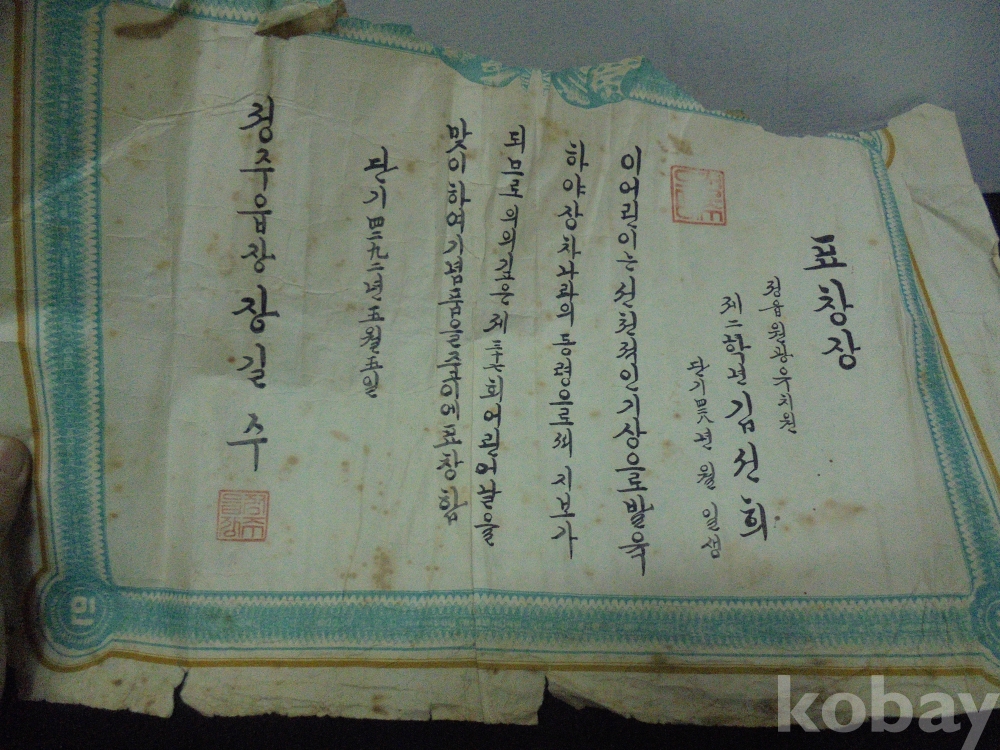 표창장
김선희
단기 년 월 일생
이 어린이는 선천적인 기상으로 발육
하야 장차 나라의 동량으로써 지보가
되므로 의의깊은 제三七회 어린이날을
맞이하여 기념품을 주어 이 표창함
단기四二九二년五월五일
정주읍장 장길주
민
kobay